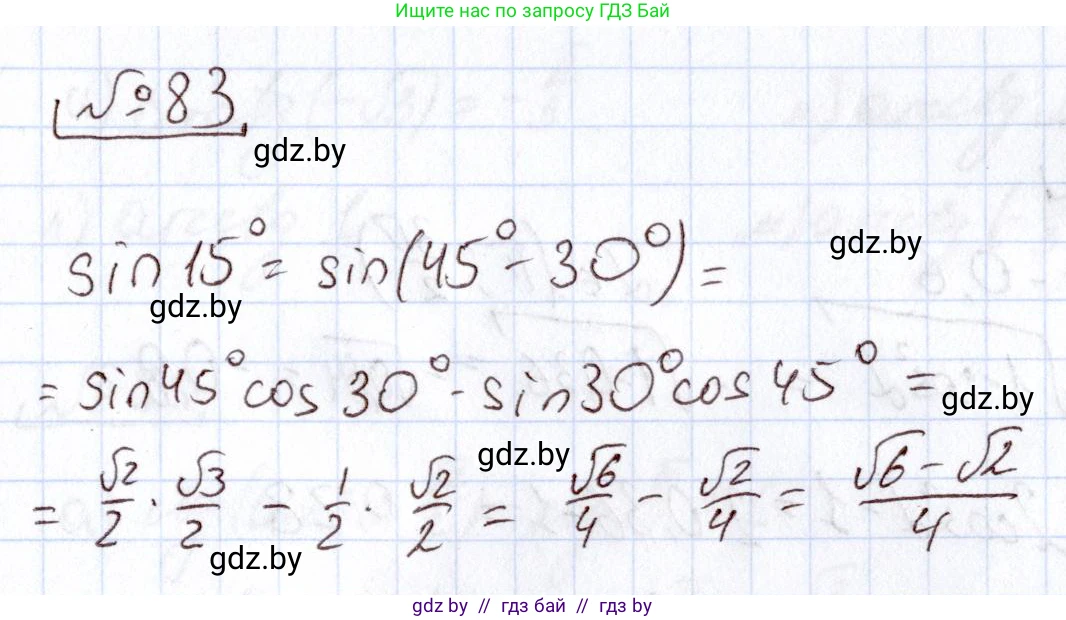 Ищите нас по запросу ГДЗ Бай
№83.
gdz.by
sin 15° = sin(45° - 30°) =
gdz.by
gdz.by
= sin45°cos 30° - sin30°cos 45° =
gdz.by
gdz.by
= √2/2 · √3/2 - 1/2 · √2/2 = √6/4 - √2/4 = (√6 - √2)/4
gdz.by
gdz by // гдз бай // гдз by